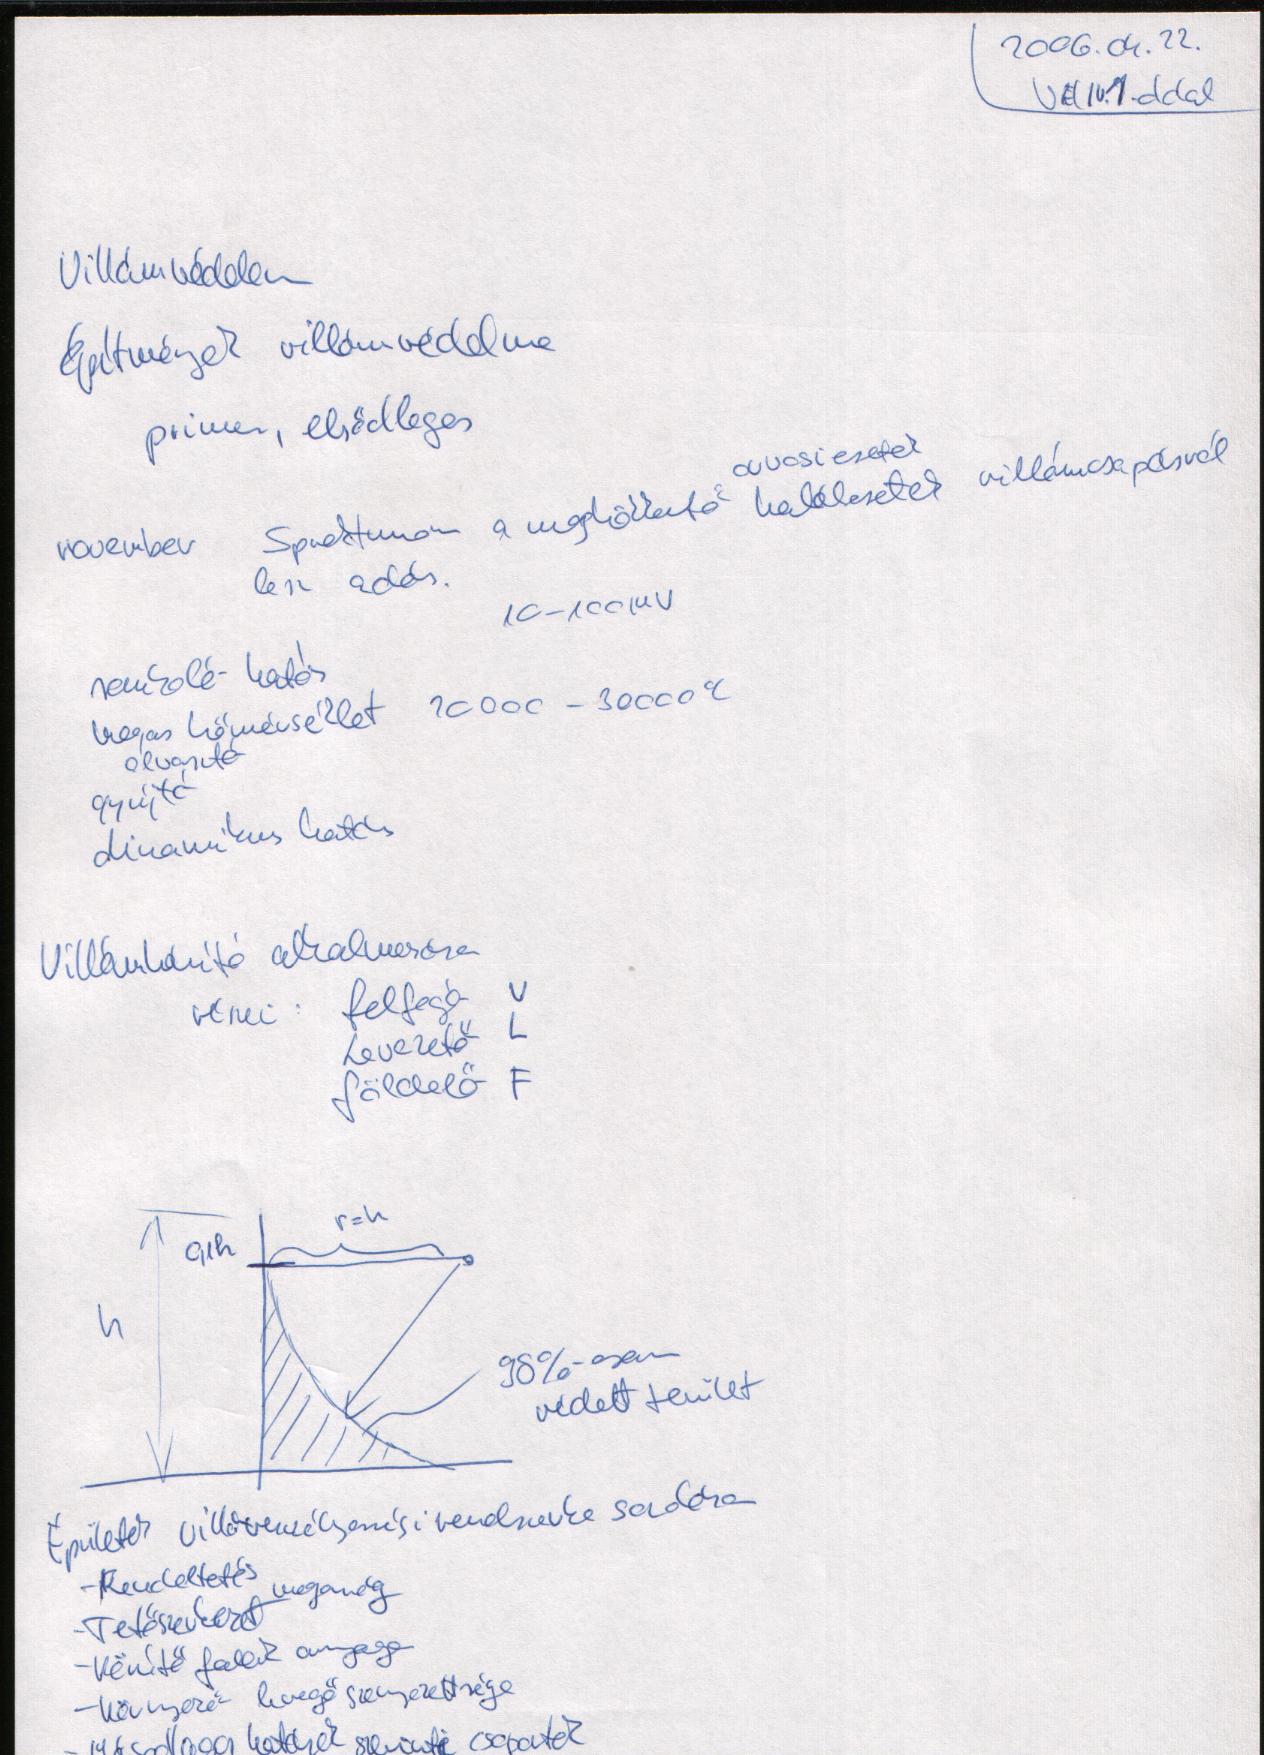 2006.04.22.
1. oldal
Villámvédelem
Építmények villámvédelme
primer, elsődleges
orvosi esetek
november Spektrumon a meghökkentő halálesetek villámcsapásról
lesz adás.
10-100MV
romboló hatás
magas hőmérséklet 20000 - 30000 °C
olvasztó
gyújtó
dinamikus hatás
Villámhárító alkalmazása
részei: felfogó V
Levezető L
földelő F
r=h
0,1h
h
98%-osan
védett terület
Épületek villámveszélyességi rendszerbe sorolása
-Rendeltetés
-Tetőszerkezet magasság
-Külső falak anyaga
-környező levegő szennyezettsége
-Másodlagos hatások szerinti csoportok